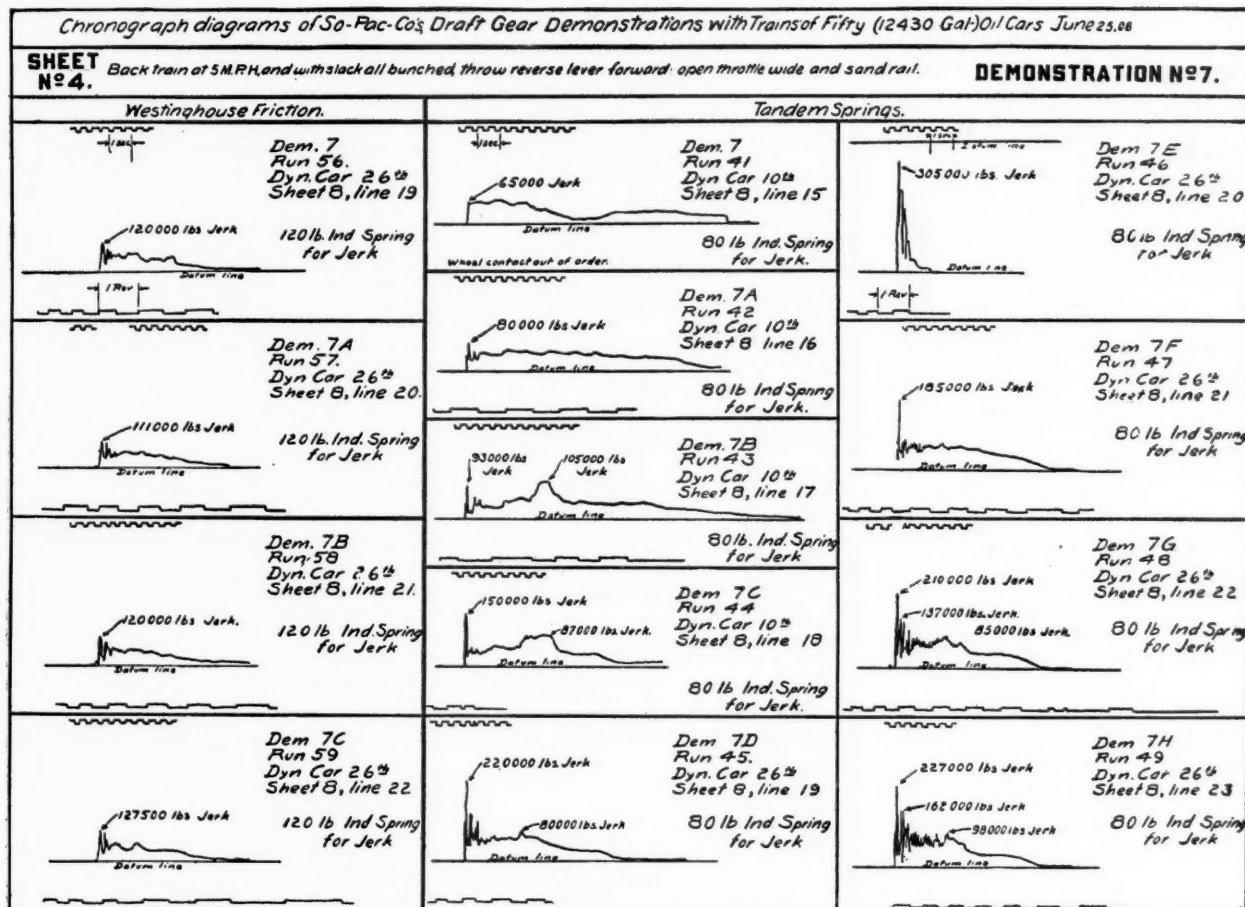 Chronograph diagrams of So-Pac-Co's, Draft Gear Demonstrations with Trains of Fifty (12430 Gal-) Oil Cars June 25.08
SHEET
Nº4.
Back train at 5 M.P.H, and with slack all bunched, throw reverse lever forward. open throttle wide and sand rail.
DEMONSTRATION Nº7.
Westinghouse Friction.
1 sec
Dem. 7
Run 56.
Dyn. Car 26th
Sheet 8, line 19
120000 lbs Jerk
120 lb. Ind Spring
for Jerk
Datum line
1 Rev
Dem. 7A
Run 57.
Dyn Car 26th
Sheet 8, line 20.
111000 lbs Jerk
120 lb. Ind. Spring
for Jerk
Datum line
Dem. 7B
Run 58
Dyn. Car 26th
Sheet 8, line 21.
120000 lbs Jerk.
120 lb Ind. Spring
for Jerk
Datum line
Dem 7C
Run 59
Dyn Car 26th
Sheet 8, line 22
127500 lbs Jerk
120 lb Ind Spring
for Jerk
Datum line
Tandem Springs.
1 sec
Dem. 7
Run 41
Dyn Car 10th
Sheet 8, line 15
65000 Jerk
Datum line
80 lb Ind. Spring
for Jerk.
Wheel contact out of order.
Dem. 7A
Run 42
Dyn. Car 10th
Sheet 8 line 16
80000 lbs Jerk
Datum line
80 lb Ind Spring
for Jerk.
Dem. 7B
Run 43
Dyn Car 10th
Sheet 8, line 17
93000 lbs
Jerk
105000 lbs
Jerk
Datum line
80 lb. Ind Spring
for Jerk
Dem 7C
Run 44
Dyn. Car 10th
Sheet 8, line 18
150000 lbs Jerk
87000 lbs Jerk.
Datum line
80 lb Ind. Spring
for Jerk.
Dem 7D
Run 45.
Dyn. Car 26th
Sheet 8, line 19
220000 lbs. Jerk
80000 lbs. Jerk
80 lb Ind Spring
for Jerk
Datum line
1 sec
Datum line
Dem 7E
Run 46
Dyn. Car 26th
Sheet 8, line 20
305000 lbs. Jerk
80 lb Ind Spring
for Jerk
Datum line
1 Rev
Dem 7F
Run 47
Dyn. Car 26th
Sheet 8, line 21
185000 lbs. Jerk
80 lb Ind Spring
for Jerk
Datum line
Dem 7G
Run 48
Dyn Car 26th
Sheet 8, line 22
210000 lbs Jerk
137000 lbs Jerk.
85000 lbs Jerk
80 lb Ind Spring
for Jerk
Datum line
Dem 7H
Run 49
Dyn. Car 26th
Sheet 8, line 23
227000 lbs Jerk
162000 lbs Jerk
98000 lbs Jerk
80 lb Ind Spring
for Jerk
Datum line